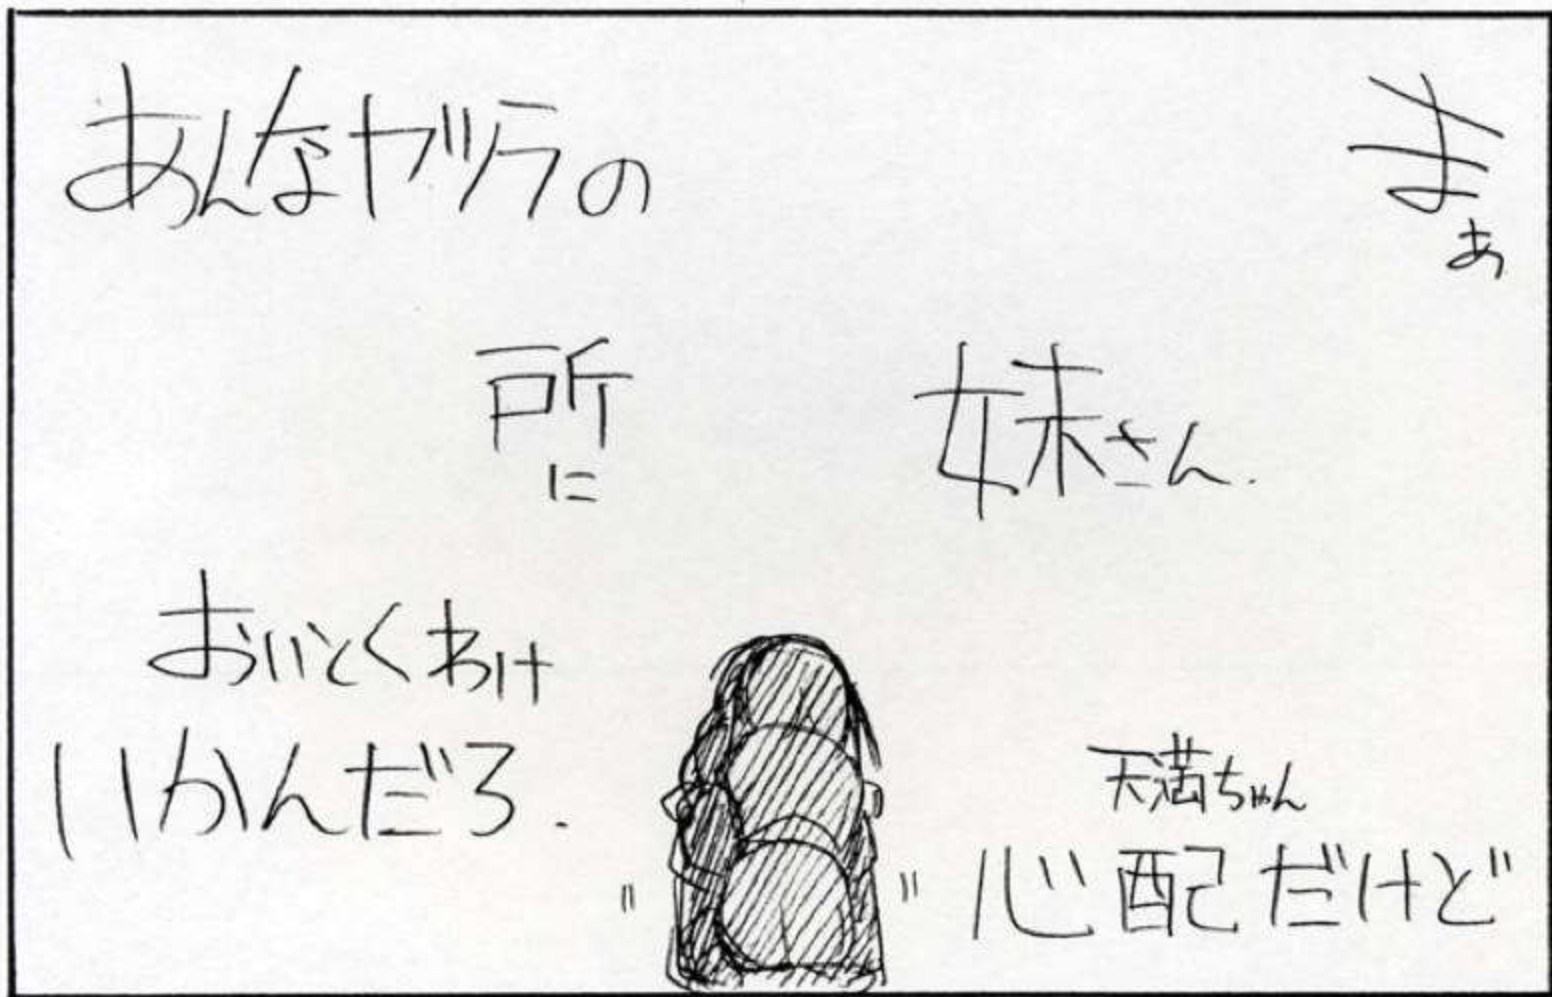 まぁ
妹さん.
天満ちゃん
心配だけど
あんなヤツラの
所に
おいとくわけ
いかんだろ.